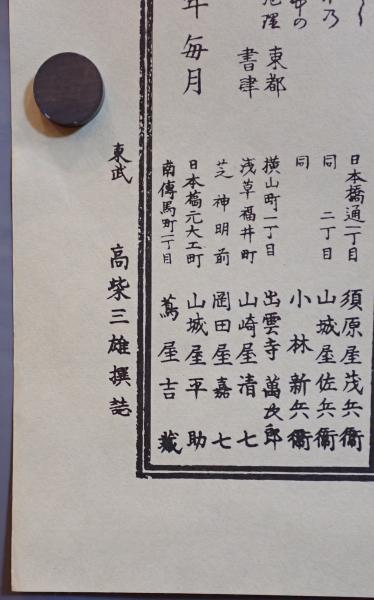 日本橋通一丁目 須原屋茂兵衛
同 二丁目 山城屋佐兵衛
同 小林新兵衛
横山町一丁目 出雲寺萬次郎
浅草福井町 山崎屋清七
芝神明前 岡田屋嘉七
日本橋元大工町 山城屋平助
南傳馬町一丁目 蔦屋吉蔵
東都
書津
年毎月
東武 高柴三雄撰誌